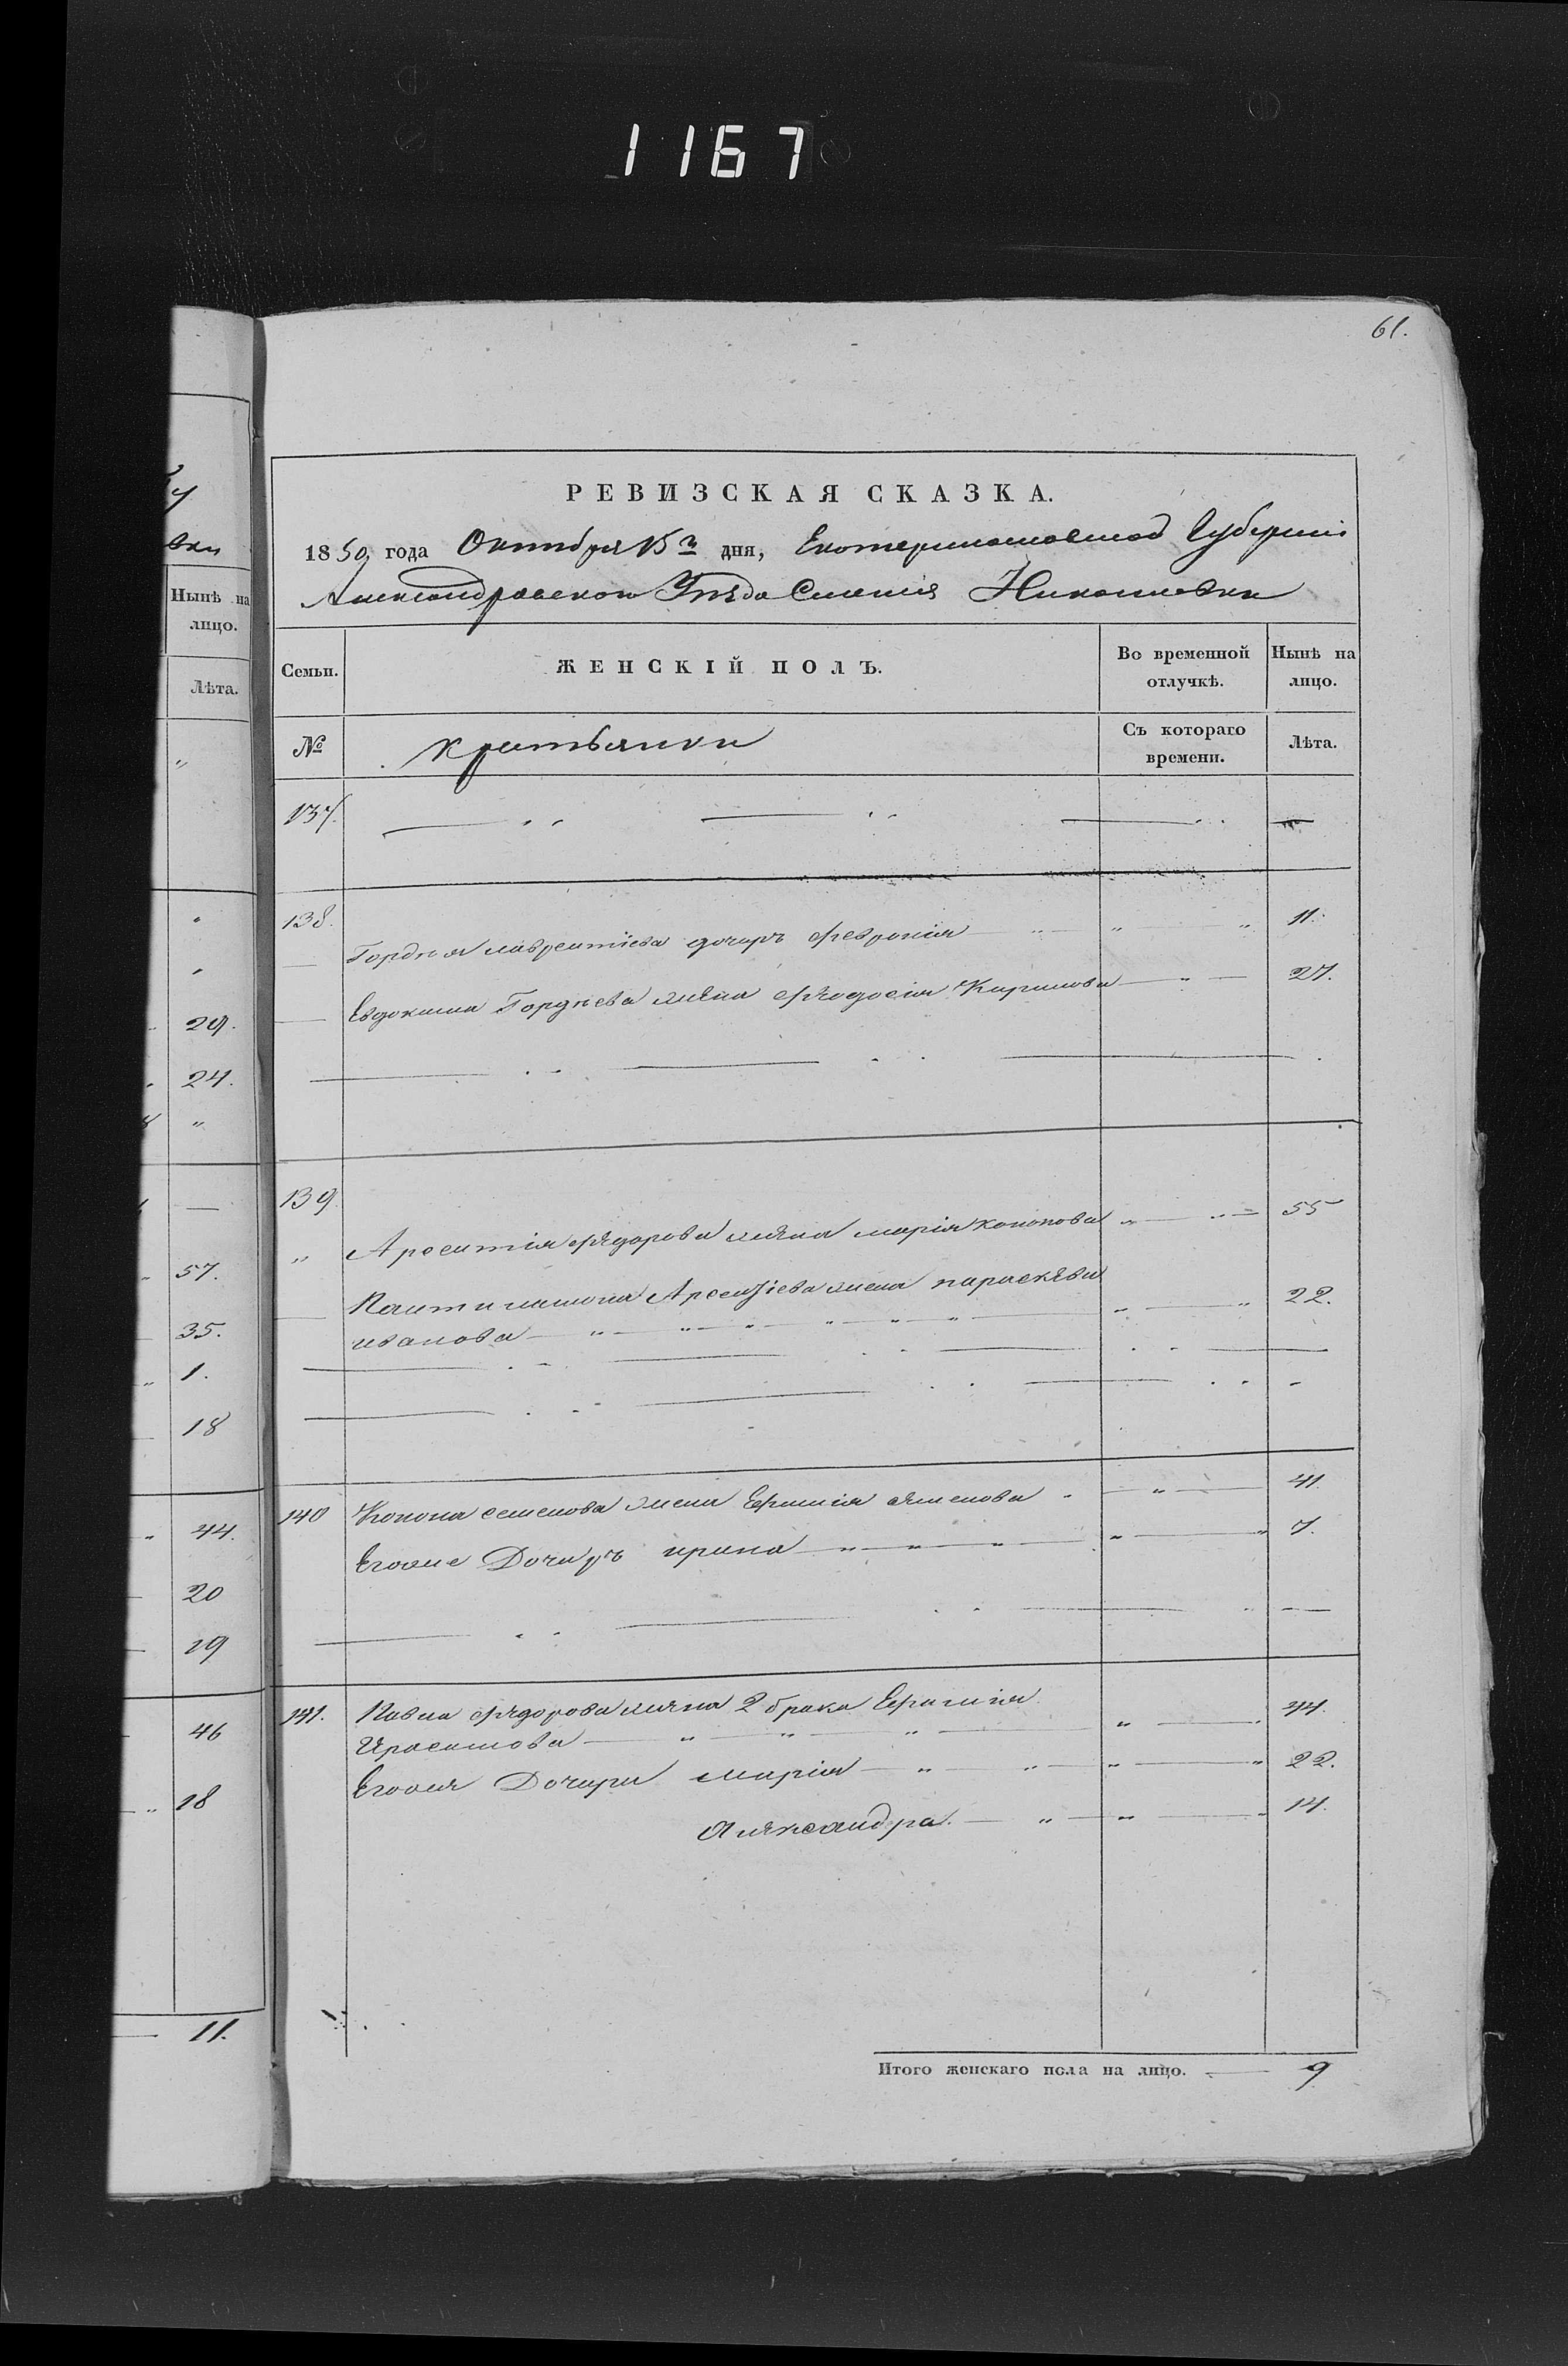 1167
61.
РЕВИЗСКАЯ СКАЗКА.
1850 года Октября 15го дня, Екатеринославской Губернiи
Александровскаго Уѣзда Селенiя Николаевки
Нынѣ на лицо.
Лѣта.
29.
24.
57.
35.
1.
18
44.
20
19
46
18
11.
Семьи. ЖЕНСКIЙ ПОЛЪ. Во временной отлучкѣ. Нынѣ на лицо.
№ крестьянки Съ котораго времени. Лѣта.
137.
138. 11.
Гордѣя лаврентiева дочеръ феврония
Евдокима Гордѣева жена федосiя Кирилова 27.
139.
Арсентiя фѣдорова жена марiя кононова 55
Пантилимона Арсентiева жена параскѣва
иванова 22.
140 Конона семенова жена Ефимiя семенова 41
Егоже Дочеръ ирина 7.
141. Павла фѣдорова жена 2 брака Ефимiя 44.
Герасимова
Егожъ Дочери марiя 22.
Алѣксандра. 14.
Итого женскаго пола на лицо. 9